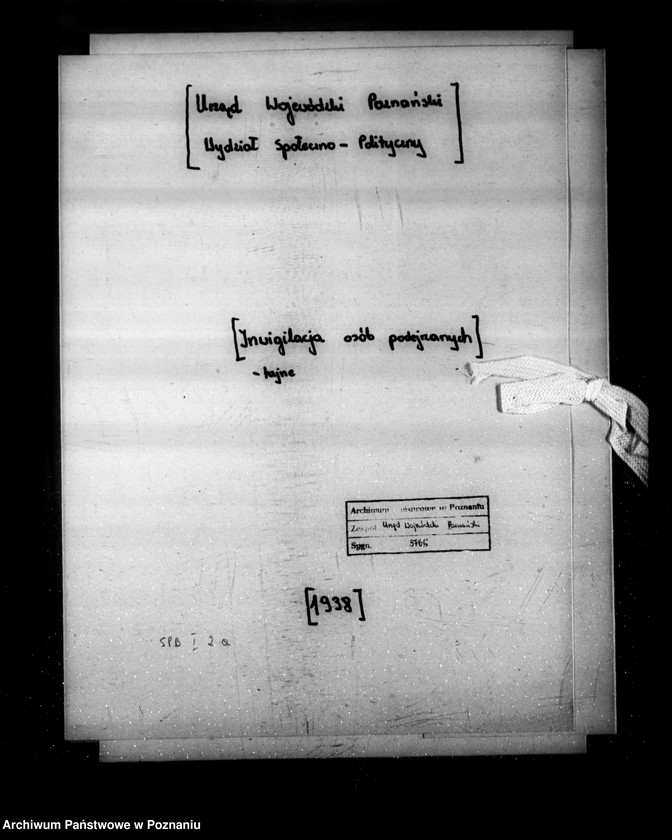 [Urząd Wojewódzki Poznański
Wydział Społeczno - Polityczny]
[Inwigilacja osób podejrzanych]
- tajne
Archiwum Państwowe w Poznaniu
Zespół Urząd Wojewódzki Poznański
Sygn. 5765
[1938]
SPB I 2 a
Archiwum Państwowe w Poznaniu